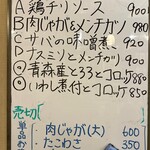 A 鶏チリソース 900
B 肉じゃが&メンチカツ 980
C サバの味噌煮 920
D ナスミソとメンチカツ 900
青森産とろろとコロッケ 880
いわし煮付とコロッケ 850
売切
単品
肉じゃが(大) 600
たこわさ 350